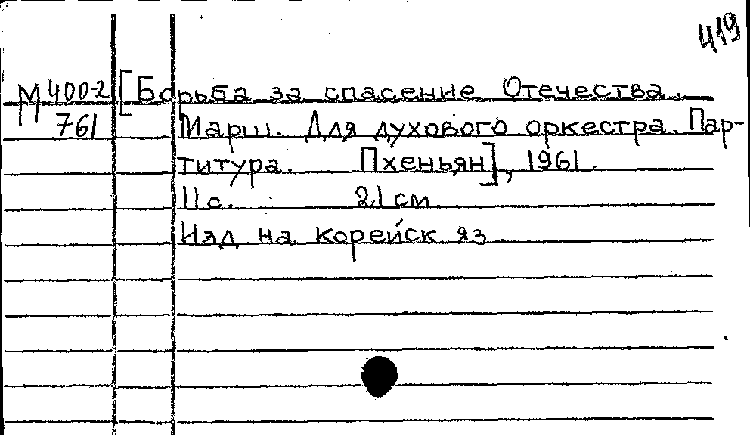 419
М 400-2 [Борьба за спасение Отечества.
761 Марш. Для духового оркестра. Пар-
титура. Пхеньян], 1961.
11 с. 21 см.
Изд на корейск яз